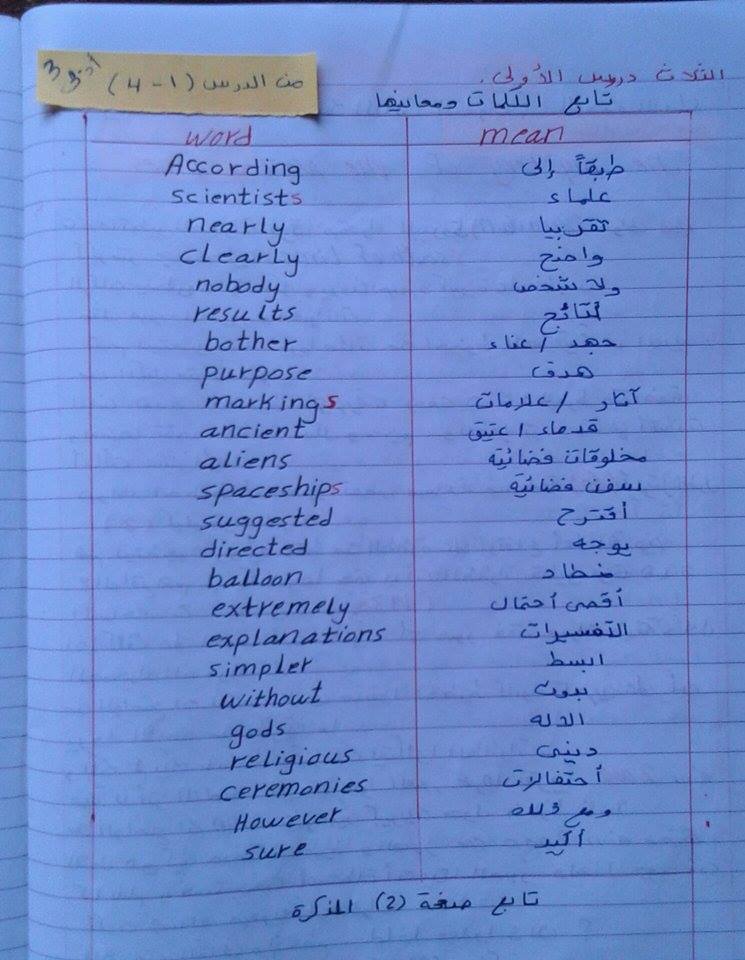 من الدرس (1 - 4)
الثلاث دروس الأولى.
تابع الكلمات ومعانيها
word mean
According طبقاً إلى
scientists علماء
nearly تقريبا
clearly واضح
nobody ولا شخص
results نتائج
bother جهد / عناء
purpose هدف
markings آثار / علامات
ancient قدماء / عتيق
aliens مخلوقات فضائية
spaceships سفن فضائية
suggested أقترح
directed يوجه
balloon منطاد
extremely أقصى أحتمال
explanations التفسيرات
simpler ابسط
without بدون
gods الاله
religious ديني
ceremonies أحتفالات
However ومع ذلك
sure أكيد
تابع صفحة (2) المذكرة